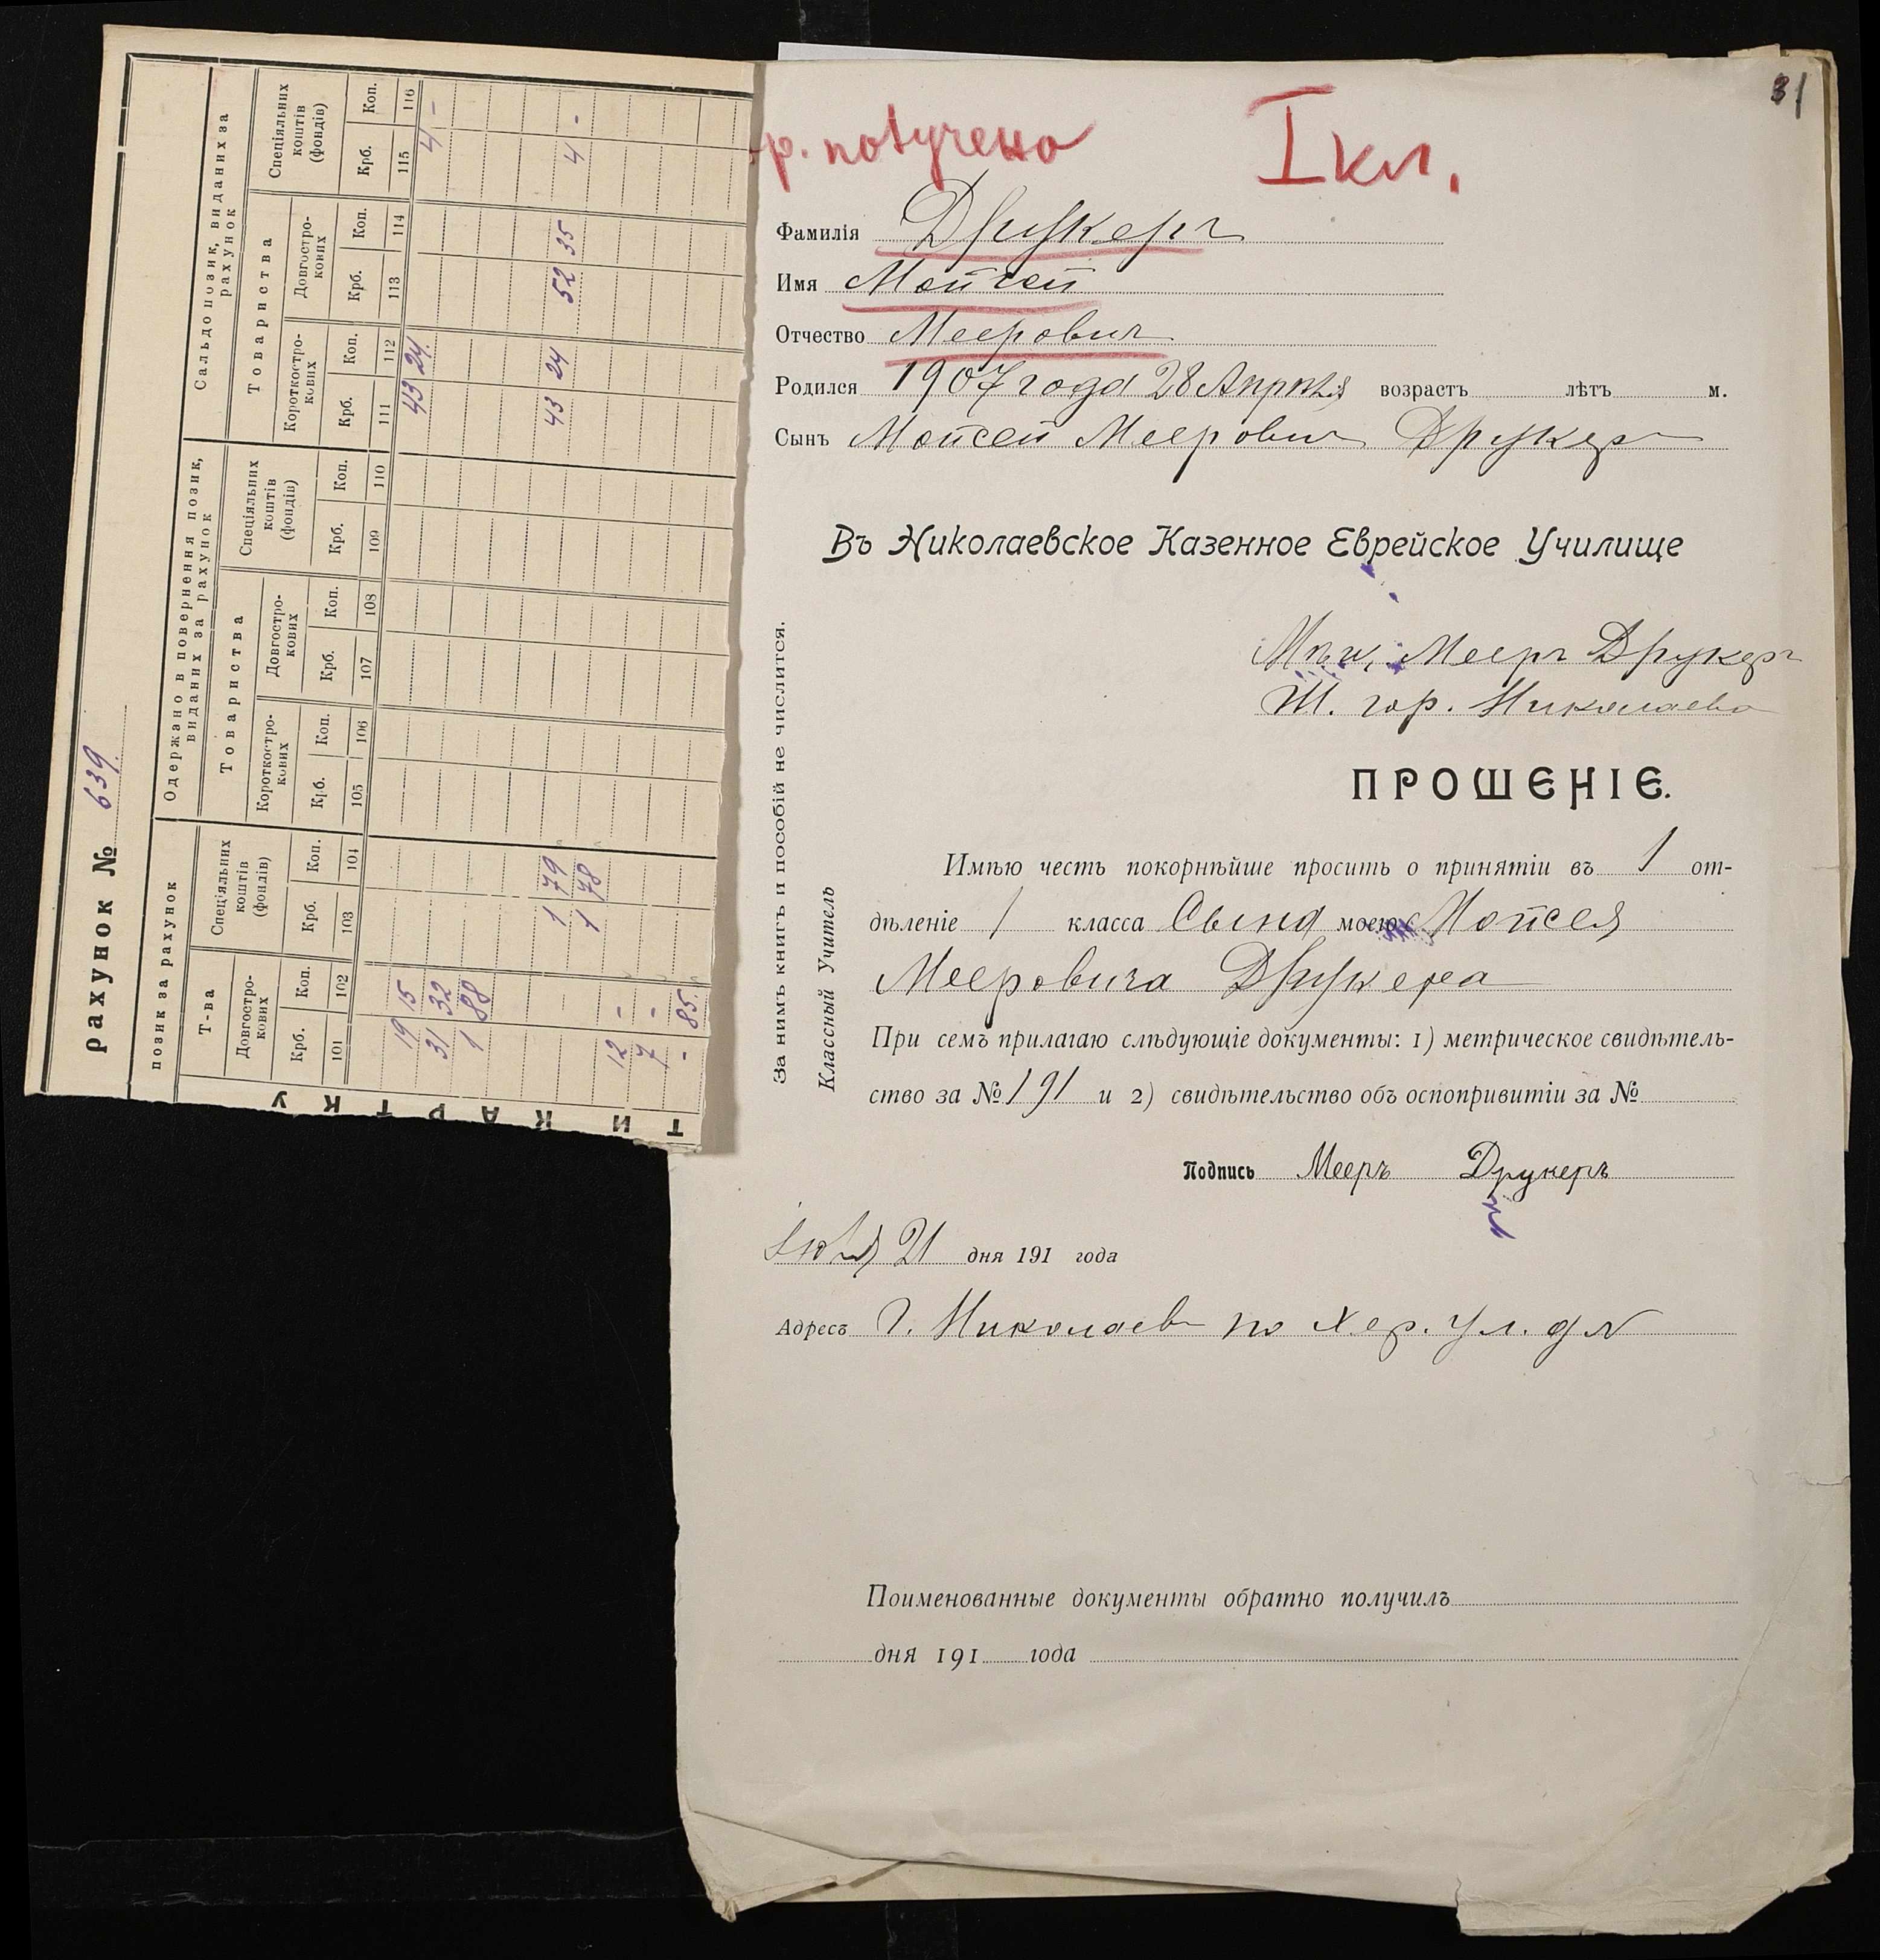 31
р. получено I кл.
Фамилія Друкеръ
Имя Мойсей
Отчество Мееровичъ
Родился 1907 года 28 Апрѣля возрастъ лѣтъ м.
Сынъ Мойсей Меерович Друкер
Въ Николаевское Казенное Еврейское Училище
Мѣщ. Мееръ Друкеръ
гор. Николаева
ПРОШЕНІЕ.
Имѣю честь покорнѣйше просить о принятіи въ 1 от-
дѣленіе 1 класса Сына моего Мойсея
Мееровича Друкера
При семъ прилагаю слѣдующіе документы: 1) метрическое свидѣтель-
ство за № 191 и 2) свидѣтельство объ оспопривитіи за №
Подпись Мееръ Друкеръ
21 дня 191 года
Адресъ г. Николаев по Хер. ул. д №
Поименованные документы обратно получилъ
дня 191 года
За нимъ книгъ и пособій не числится.
Классный Учитель
рахунок № 639
позик за рахунок
Одержано в повернення позик,
виданих за рахунок
Сальдо позик, виданих за
рахунок
Т-ва
Довгостро-
кових
Спеціяльних
коштів
(фондів)
Товариства
Короткостро-
кових
Довгостро-
кових
Спеціяльних
коштів
(фондів)
Товариства
Короткостро-
кових
Довгостро-
кових
Спеціяльних
коштів
(фондів)
Крб. Коп. Крб. Коп. Крб. Коп. Крб. Коп. Крб. Коп. Крб. Коп. Крб. Коп. Крб. Коп.
101 102 103 104 105 106 107 108 109 110 111 112 113 114 115 116
43 24 4 -
19 15
31 32
1 88
1 79 43 24 52 35 4 -
1 78
12 -
7 -
- 85
ТИ КАРТКУ